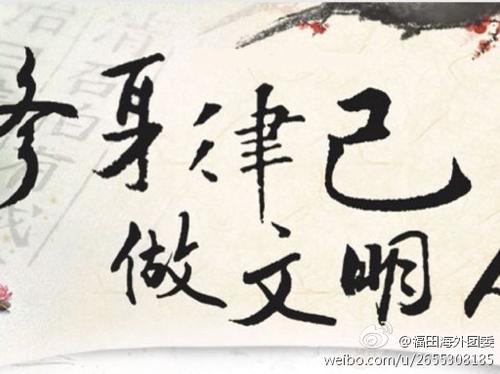 修身律己
做文明人
@福田海外团委
weibo.com/u/2655308185